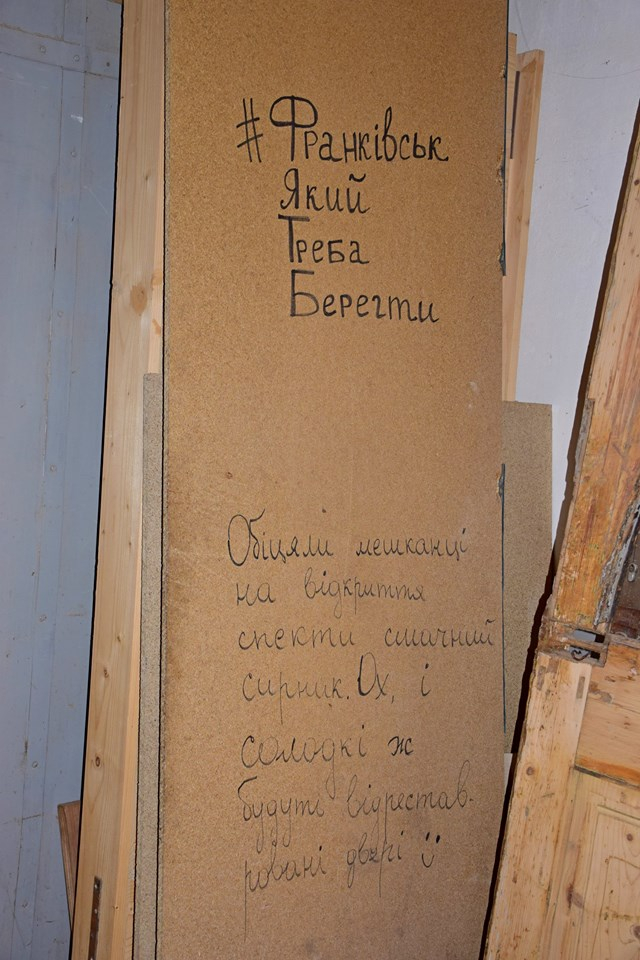 #Франківськ
Який
Треба
Берегти
Обіцяли мешканці
на відкриття
спекти смачний
сирник. Ох, і
солодкі ж
будуть відрестав-
ровані двері